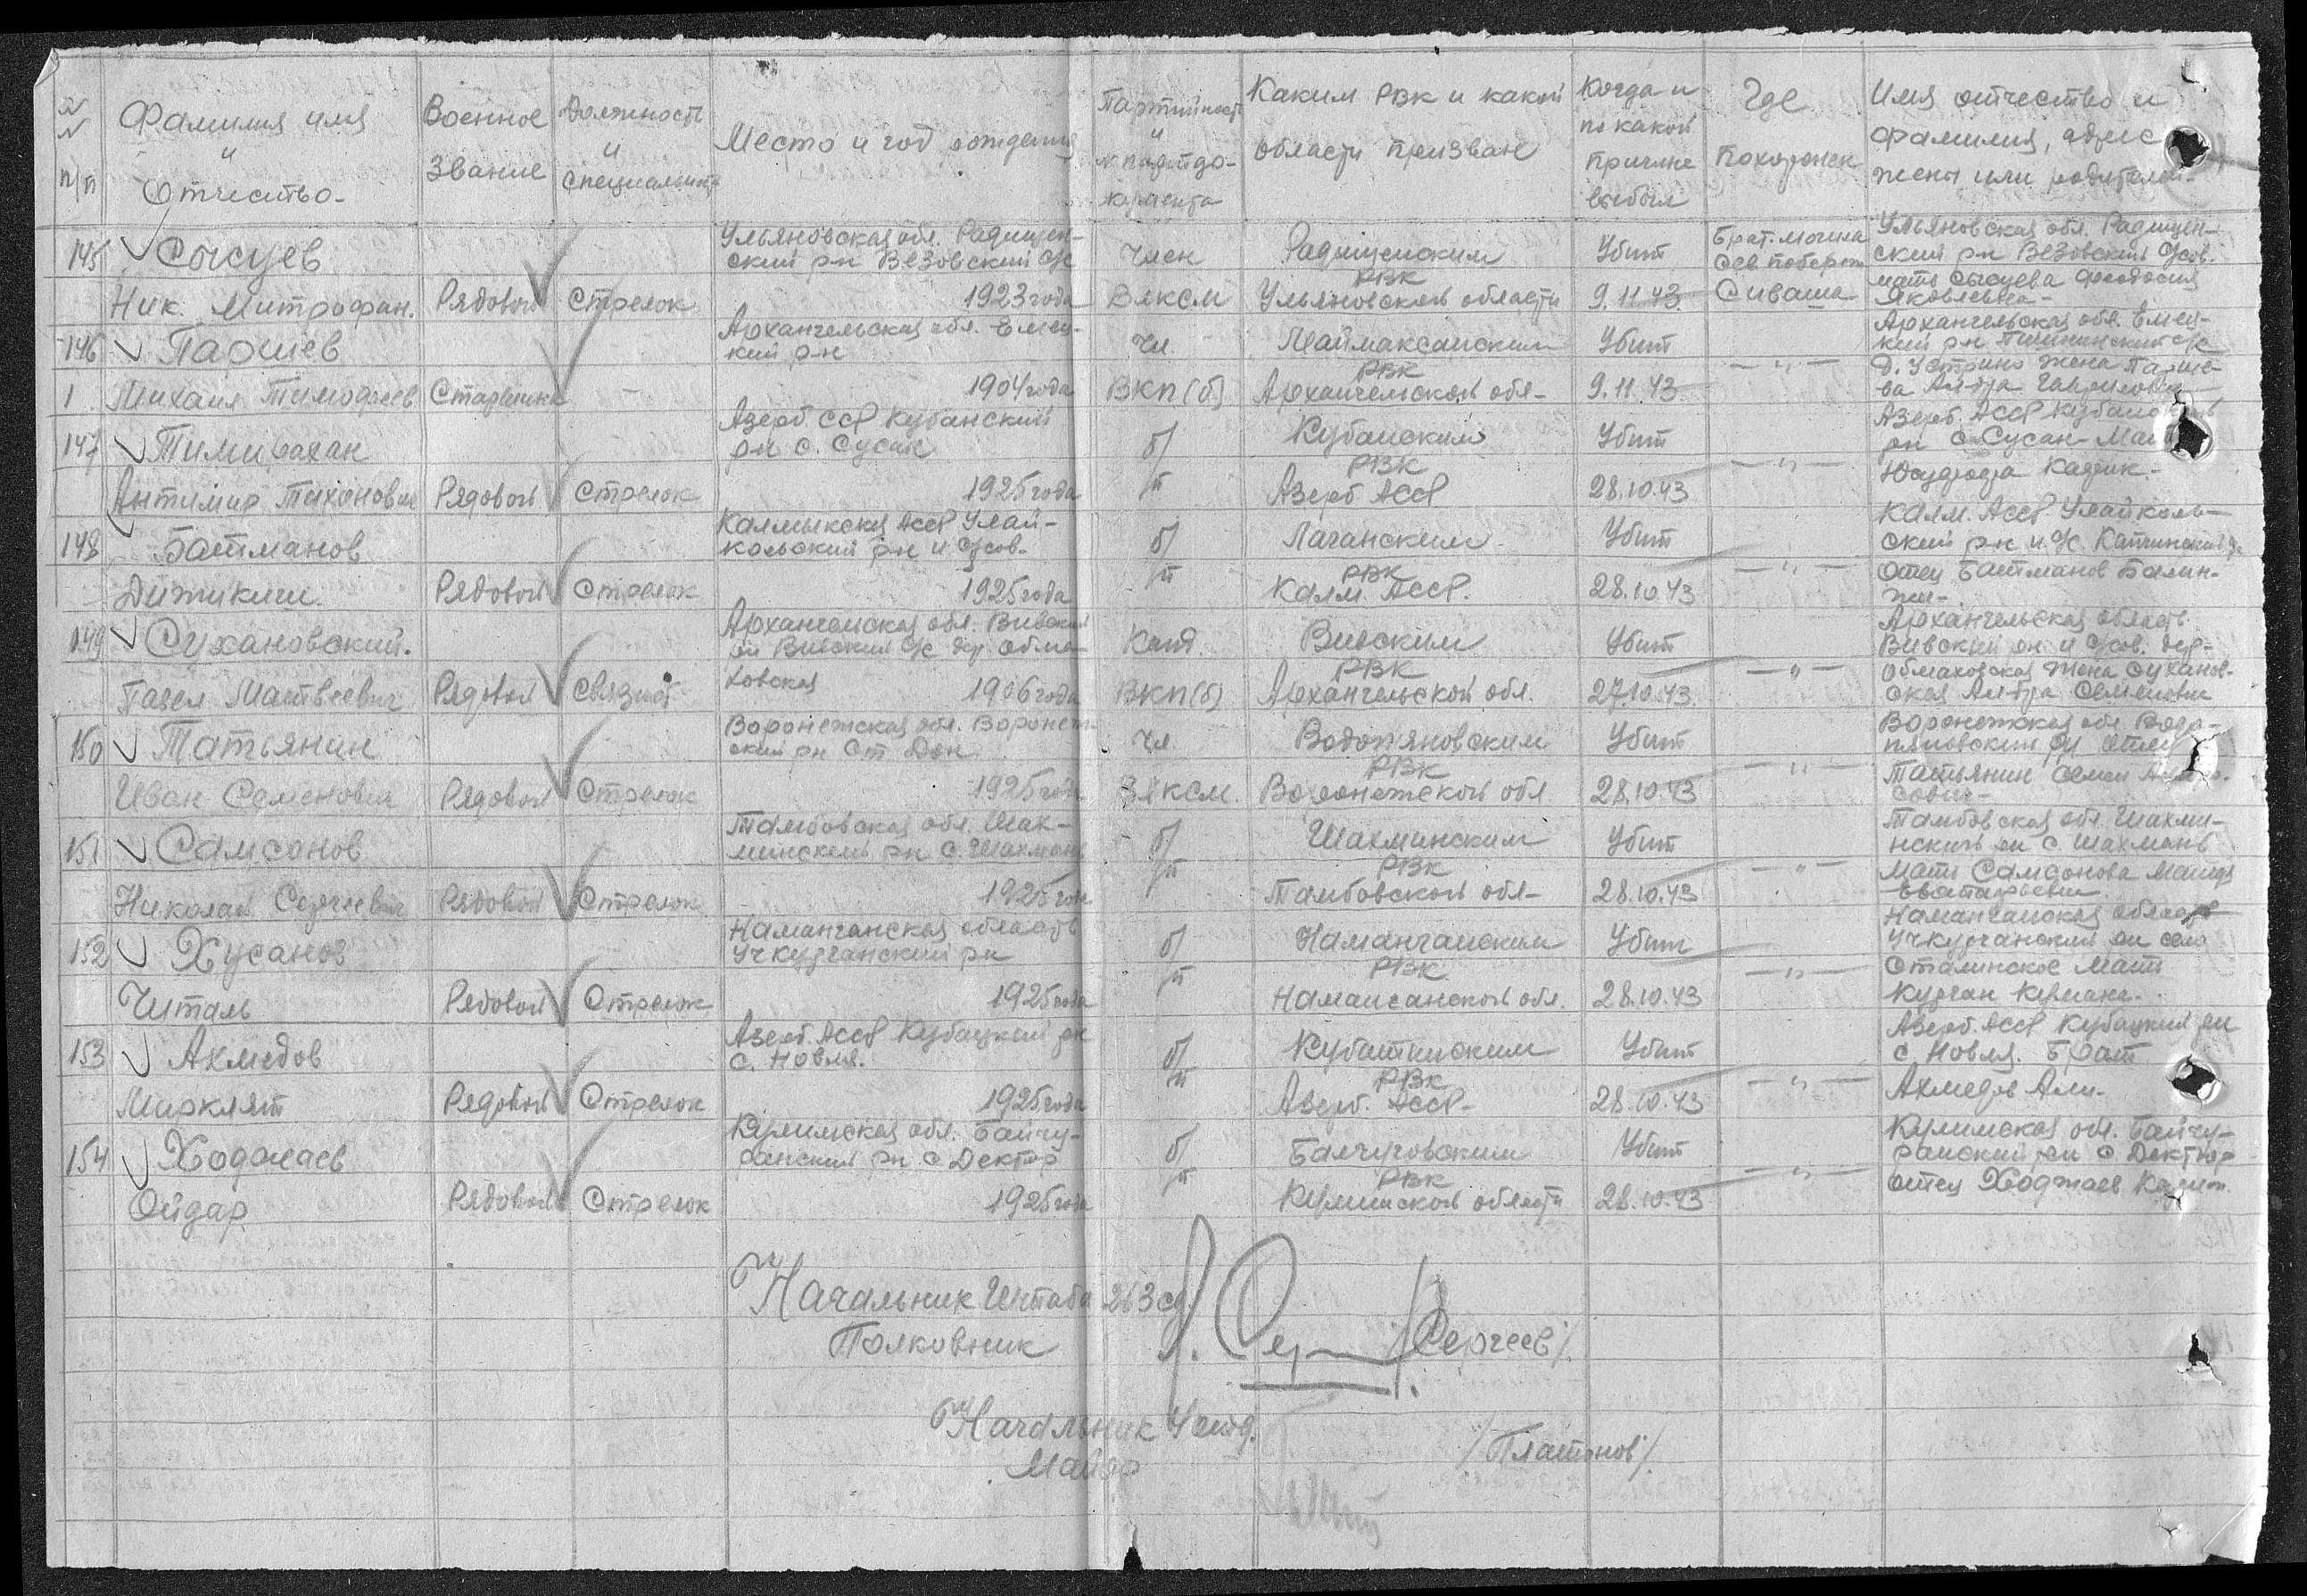 №№ п/п
Фамилия имя и Отчество-
Военное Звание
Должность и специальность
Место и год рождения
Партийность и № партдо-кумента
Каким РВК и какой области призван
Когда и по какой причине выбыл
Где похоронен
Имя отчество и фамилия, адрес жены или родителей-
145 Сысуев
Ник. Митрофан.
Рядовой
Стрелок
Ульяновская обл. Радищен-
ский рн Вязовский с/с
1923 года
Член
ВЛКСМ
Радищенским
РВК
Ульяновской области
Убит
9.11.43
Брат. могила
Сев. побереж
Сиваша
Ульяновская обл. Радищен-
ский рн Вязовский с/сов.
мать Сысуева Феодосия
Яковлевна-
146 Паршев
1 Михаил Тимофеев
Старшина
-
Архангельская обл. Емец-
кий рн
1904 года
Чл.
ВКП(б)
Маймаксанским
РВК
Архангельской обл-
Убит
9.11.43
-"-
Архангельская обл. Емец-
кий рн
жена Парше-
ва
147 Тимирахан
Антимир Тихонович
Рядовой
Стрелок
Азерб. ССР Кубанский
рн с. Сусан
1925 года
б/п
Кубанским
РВК
Азерб АССР
Убит
28.10.43
-"-
Азерб. АССР
рн с. Сусан-Мать
148 Батманов
Рядовой
Стрелок
Калмыкская АССР Улай-
кольский рн и с/сов.
1925 года
б/п
Лаганским
РВК
Калм. АССР.
Убит
28.10.43
-"-
Калм. АССР Улайколь-
ский рн и с/с.
отец Батманов
149 Сухановский.
Павел Матвеевич
Рядовой
Связист
Архангельская обл.
1906 года
Канд.
ВКП(б)
РВК
Архангельской обл.
Убит
27.10.43.
-"-
Архангельская область
жена Суханов-
ская Семеновна
150 Татьянин
Иван Семенович
Рядовой
Стрелок
Воронежская обл. Воронеж-
ский рн Ст Дон
1925 года
Чл
ВЛКСМ.
Водопьяновским
РВК
Воронежской обл
Убит
28.10.43
-"-
Воронежская обл. Водо-
пяновский рн отец
Татьянин Семен
151 Самсонов
Николай Сергеевич
Рядовой
Стрелок
Тамбовская обл. Шах-
минский рн с. Шахмань
1925 год
б/п
Шахминским
РВК
Тамбовской обл-
Убит
28.10.43
-"-
Тамбовская обл. Шахми-
нский рн с. Шахмань
Мать Самсонова
152 Хусанов
Читаль
Рядовой
Стрелок
Наманганская область
Учкурганский рн
1925 года
б/п
Наманганским
РВК
Намансанской обл.
Убит
28.10.43
-"-
Наманганская область
Учкурганский рн село
Сталинское Мать
Курган Кермана-
153 Ахмедов
Марклят
Рядовой
Стрелок
Азерб. АССР Кубацкий рн
с. Новля.
1925 года
б/п
Кубатинским
РВК
Азерб. АССР-
Убит
28.10.43
-"-
Азерб. АССР Кубацкий рн
с. Новля. Брат
Ахмедов Али-
154 Ходжаев
Ойдар
Рядовой
Стрелок
обл. Байчу-
ранский рн с. Дектор
1925 года
б/п
РВК
области
Убит
28.10.43
-"-
обл. Байчу-
ранский рн с. Дектор
отец Ходжаев
Начальник Штаба 263 сд.
Полковник
/Сергеев/.
Начальник 4 отд.
Майор
/Платонов/.